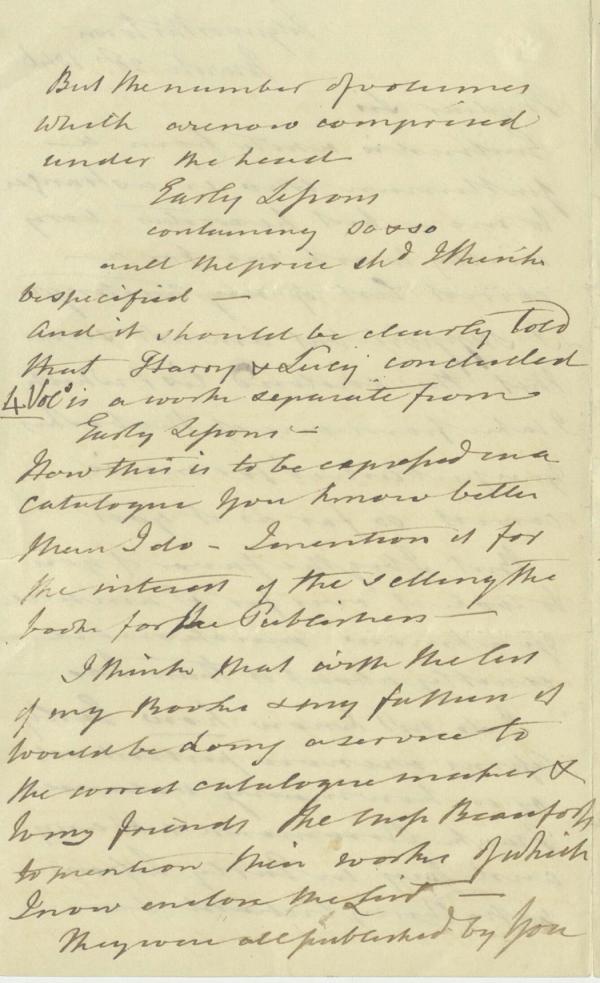 But the number of volumes
which are now comprised
under the head
Early Lessons
containing so & so
and the price shd I think
be specified —
And it should be clearly told
that Harry & Lucy concluded
4 Vols is a work separate from
Early Lessons —
How this is to be expressed in a
catalogue you know better
than I do - I mention it for
the interest of the selling the
books for the Publishers —
I think that with the list
of my Books & my fathers it
would be doing a service to
the correct catalogue maker &
to my friends the Miss Beauforts
to mention their works of which
I now enclose the List —
They were all published by You